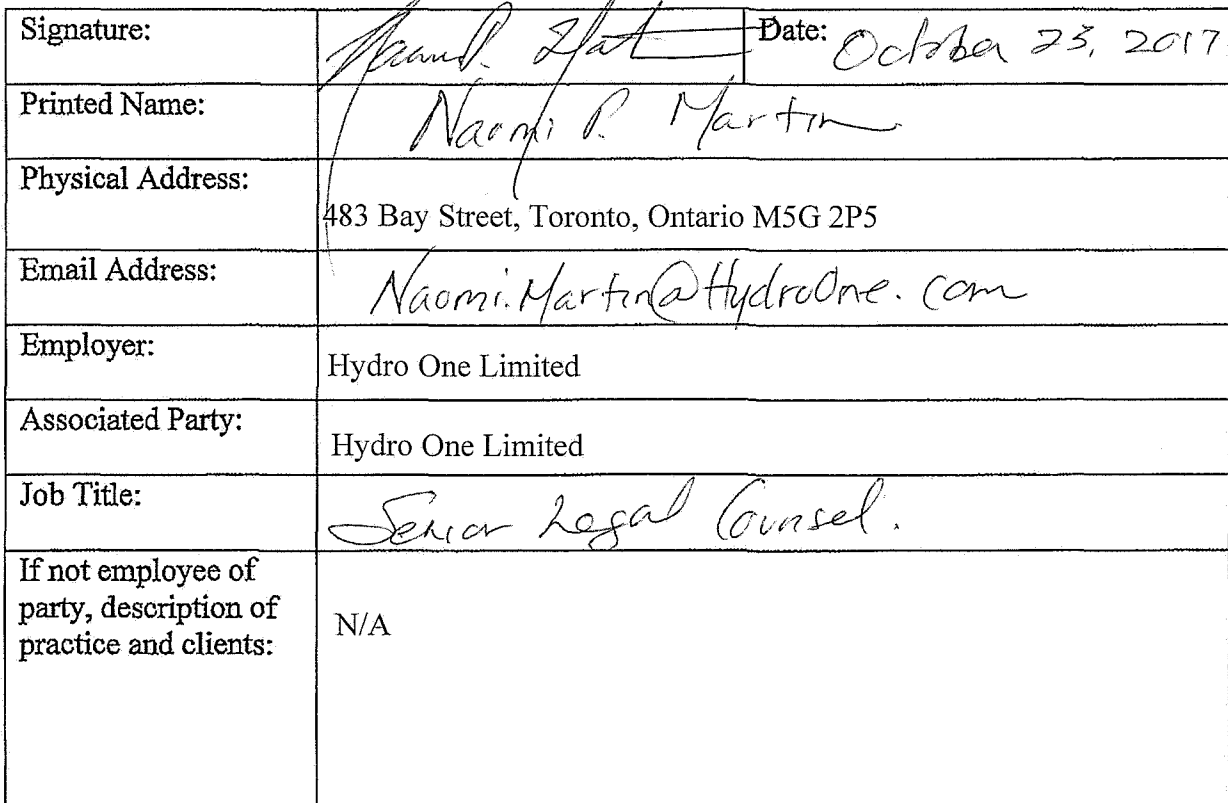 Signature: Date: October 23, 2017
Printed Name: Naomi P. Martin
Physical Address: 483 Bay Street, Toronto, Ontario M5G 2P5
Email Address: Naomi.Martin@HydroOne.com
Employer: Hydro One Limited
Associated Party: Hydro One Limited
Job Title: Senior Legal Counsel.
If not employee of
party, description of
practice and clients: N/A